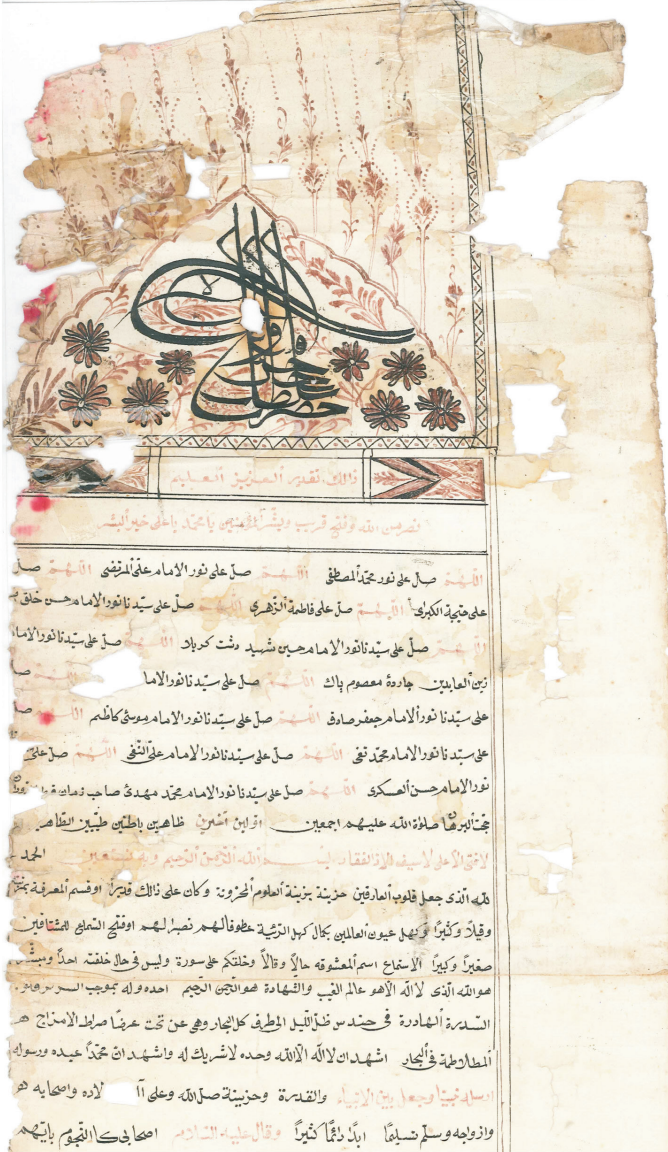 ذالك تقدير العزيز العليم
نصر من الله وفتح قريب وبشّر المؤمنين يا محمّد يا على خير البشر
اللّهمّ صلّ على نور محمّد المصطفى اللّهمّ صلّ على نور الامام علىّ المرتضى اللّهمّ صلّ
على خديجة الكبرى اللّهمّ صلّ على فاطمة الزّهرى اللّهمّ صلّ على سيّدنا نور الامام حسن خلق
اللّهمّ صلّ على سيّدنا نور الامام حسين شهيد دشت كربلا اللّهمّ صلّ على سيّدنا نور الامام
زين العابدين معصوم پاك اللّهمّ صلّ على سيّدنا نور الاما
على سيّدنا نور الامام جعفر صادق اللّهمّ صلّ على سيّدنا نور الامام موسى كاظم اللّهمّ
على سيّدنا نور الامام محمّد تقى اللّهمّ صلّ على سيّدنا نور الامام علىّ النّقى اللّهمّ صلّ على
نور الامام حسن العسكرى اللّهمّ صلّ على سيّدنا نور الامام محمّد مهدى صاحب زمان
صلاوة الله عليهم اجمعين اوّلين آخرين ظاهين باطنين طيّبين الطّاهر
لا فتى الّا على لا سيف الّا ذو الفقار بسم الله الرّحمن الرّحيم وبه نستعين الحمد
لله الّذى جعل قلوب العارفين خزينة بزينة العلوم المخزونة وكان على ذالك قديرًا اوقسم المعرفة
وقيلًا وكثيرًا عيون العالمين بكمال كهل
صغيرًا وكبيرًا الاستماع اسم المعشوقه حالًا وقالًا وخلقتكم على سورة وليس فى حال خلقته احدًا
هو الله الّذى لا اله الّا هو عالم الغيب والشّهادة هو الرّحمن الرّحيم احده وله بموجب
السّديرة الهادرة فى حندس ظلّ اللّيل الى طرف كل البحار وهى عن تحت عرضًا صراط الامزاج
المطلاطمة فى البحار اشهد ان لا اله الّا الله وحده لا شريك له واشهد انّ محمّدًا عبده ورسوله
ارسله نبيّنا وجعل بين الانبياء والقدرة وحزينة صلّ الله وعلى آ لاده واصحابه
وازواجه وسلّم تسليمًا ابدًا دائمًا كثيرًا وقال عليه السّلام اصحابى كاالنّجوم بايّهم